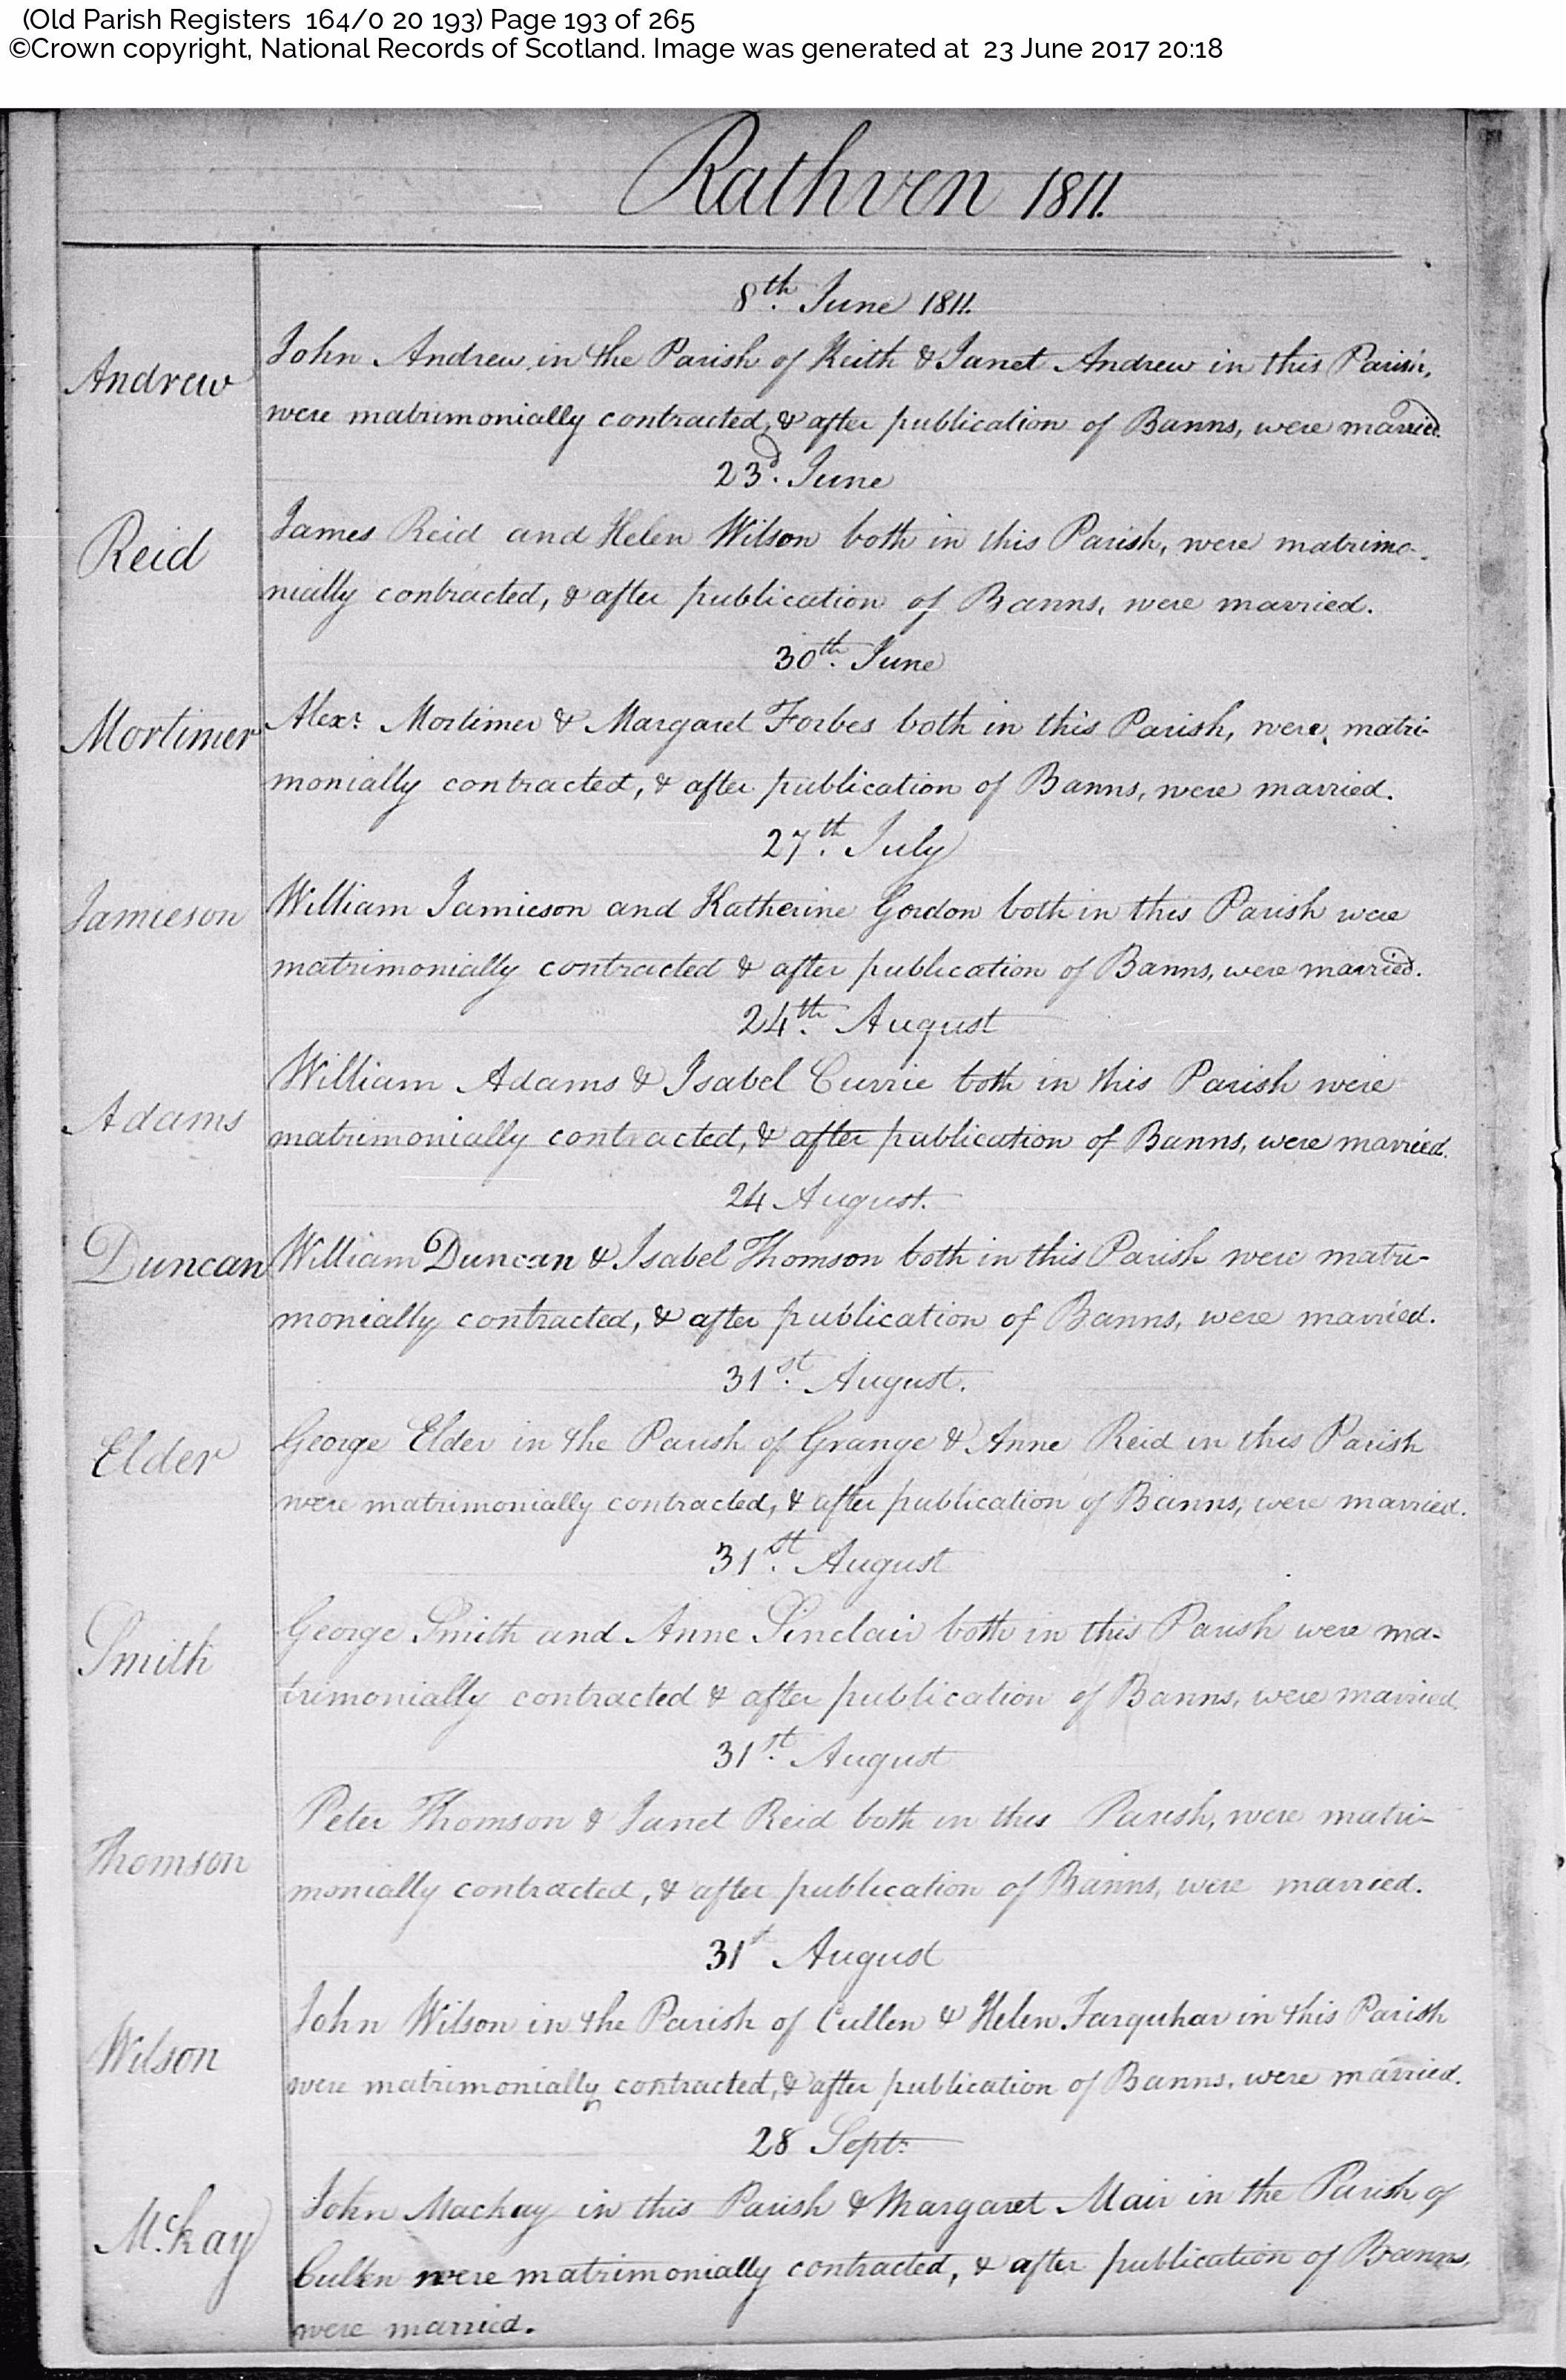 (Old Parish Registers 164/0 20 193) Page 193 of 265
©Crown copyright, National Records of Scotland. Image was generated at 23 June 2017 20:18
Rathven 1811.
8th. June 1811.
Andrew
John Andrew in the Parish of Keith & Janet Andrew in this Parish,
were matrimonially contracted, & after publication of Banns, were married.
23d. June
Reid
James Reid and Helen Wilson both in this Parish, were matrimo-
nially contracted, & after publication of Banns, were married.
30th. June
Mortimer
Alexr. Mortimer & Margaret Forbes both in this Parish, were matri-
monially contracted, & after publication of Banns, were married.
27th. July
Jamieson
William Jamieson and Katherine Gordon both in this Parish were
matrimonially contracted & after publication of Banns, were married.
24th. August
Adams
William Adams & Isabel Currie both in this Parish were
matrimonially contracted, & after publication of Banns, were married.
24 August.
Duncan
William Duncan & Isabel Thomson both in this Parish were matri-
monially contracted, & after publication of Banns, were married.
31st. August.
Elder
George Elder in the Parish of Grange & Anne Reid in this Parish
were matrimonially contracted, & after publication of Banns, were married.
31st. August
Smith
George Smith and Anne Sinclair both in this Parish were ma-
trimonially contracted & after publication of Banns, were married
31st. August
Thomson
Peter Thomson & Janet Reid both in this Parish, were matri-
monially contracted, & after publication of Banns, were married.
31st August
Wilson
John Wilson in the Parish of Cullen & Helen Farquhar in this Parish
were matrimonially contracted, & after publication of Banns, were married.
28 Septr.
McKay
John Mackay in this Parish & Margaret Mair in the Parish of
Cullen were matrimonially contracted, & after publication of Banns,
were married.